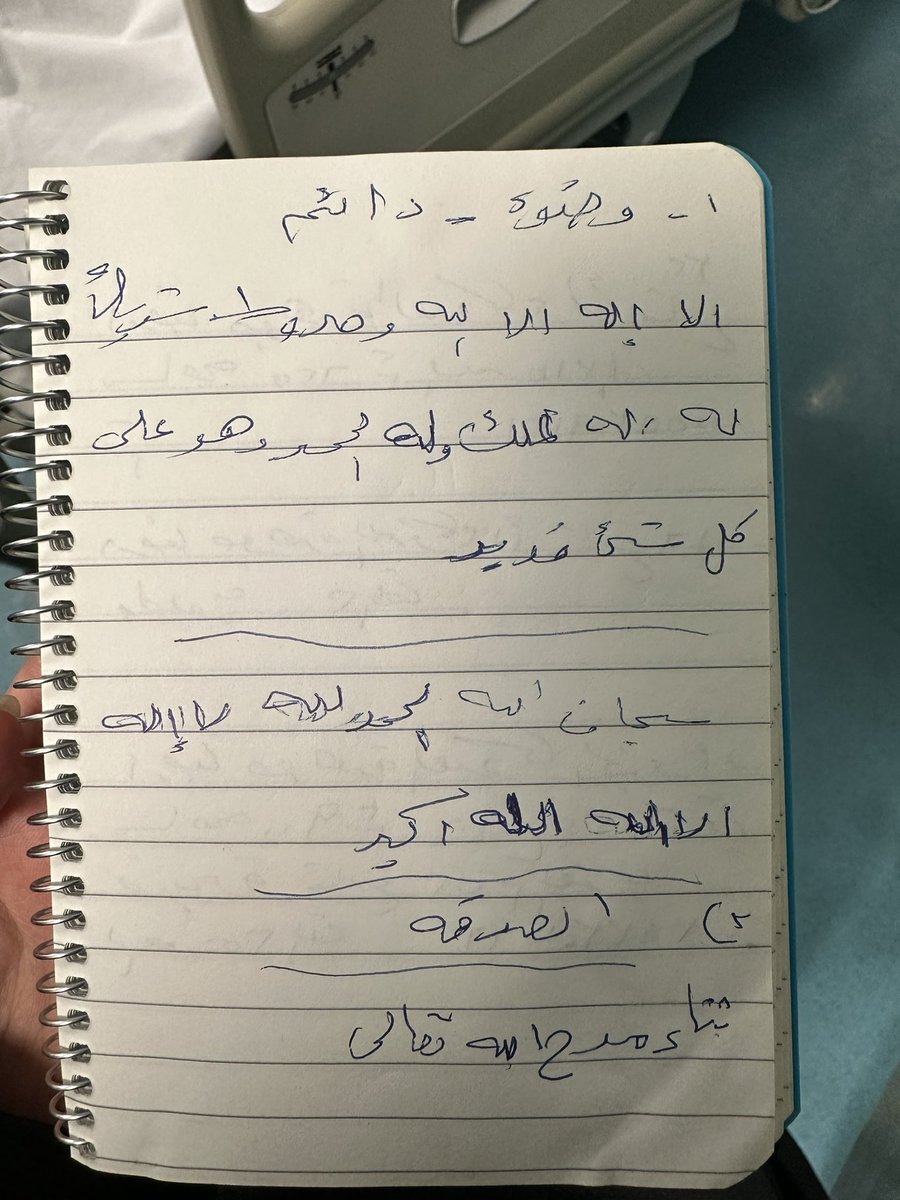 ١- وضوء - دائم
الا إله الا الله وحدو لا شريكاً
له ،له الملك وله الحمد وهو على
كل شئ قدير
سبحان الله الحمد لله لا إله
الا الله الله اكبر
٢) الصدقه
ثناء مدح الله تعالى